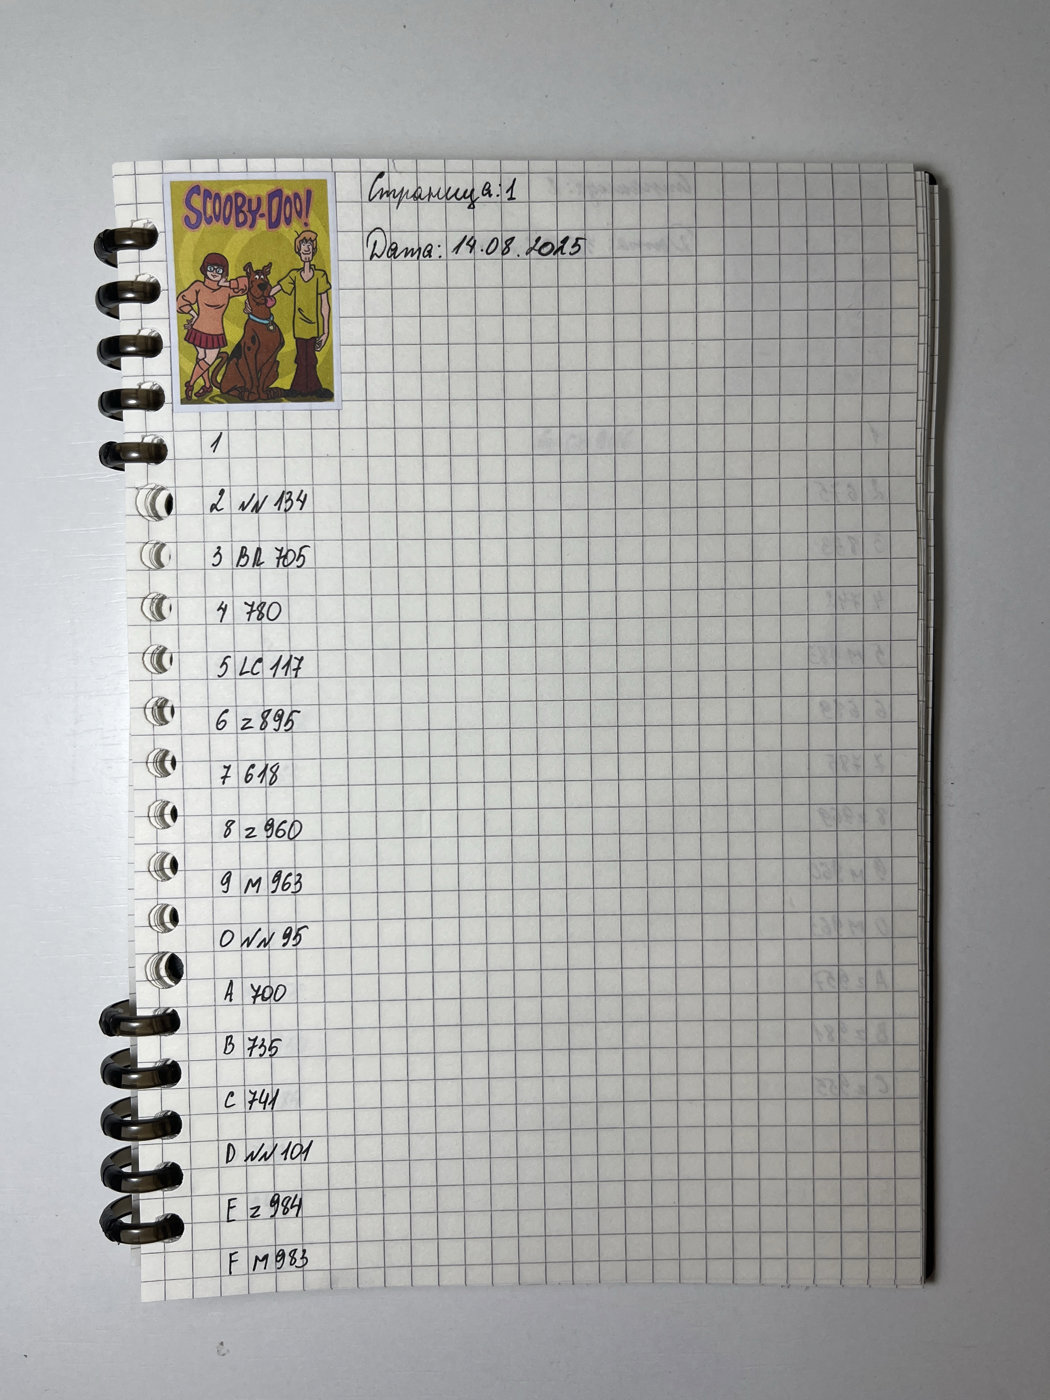 SCOOBY-DOO!
Страница: 1
Дата: 14.08.2025
1
2 NN 134
3 BR 705
4 780
5 LC 117
6 z 895
7 618
8 z 960
9 M 963
0 NN 95
A 700
B 735
C 741
D NN 101
E z 984
F M 983